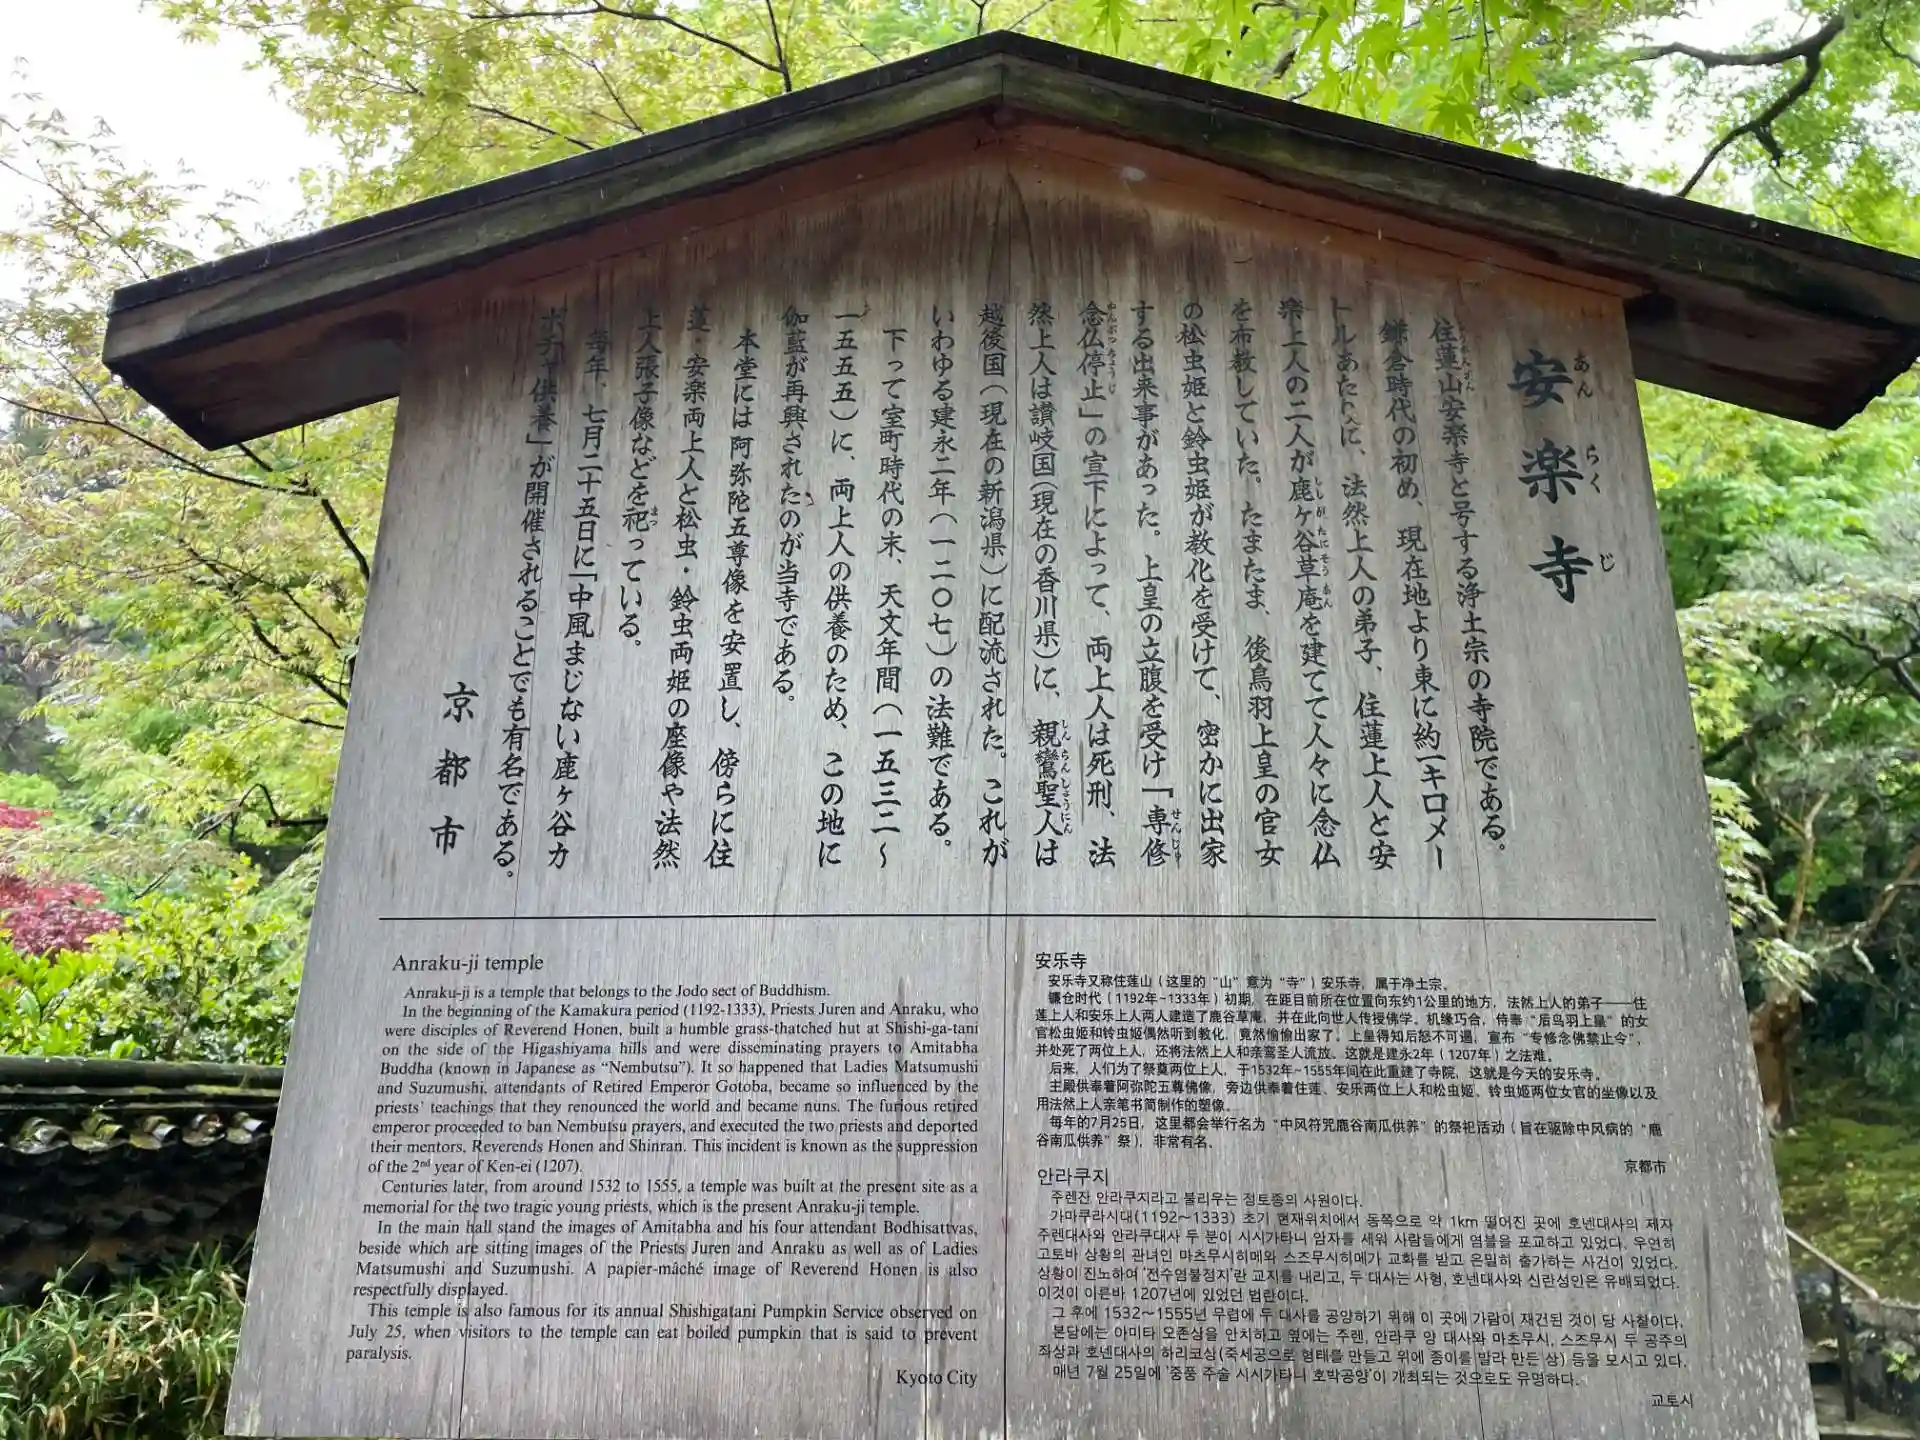 安楽寺
あんらくじ
住蓮山安楽寺と号する浄土宗の寺院である。
鎌倉時代の初め、現在地より東に約一キロメー
トルあたりに、法然上人の弟子、住蓮上人と安
楽上人の二人が鹿ヶ谷草庵を建てて人々に念仏
を布教していた。たまたま、後鳥羽上皇の官女
の松虫姫と鈴虫姫が教化を受けて、密かに出家
する出来事があった。上皇の立腹を受け「専修
念仏停止」の宣下によって、両上人は死刑、法
然上人は讃岐国(現在の香川県)に、親鸞聖人は
越後国(現在の新潟県)に配流された。これが
いわゆる建永二年(一二〇七)の法難である。
下って室町時代の末、天文年間(一五三二～
一五五五)に、両上人の供養のため、この地に
伽藍が再興されたのが当寺である。
本堂には阿弥陀五尊像を安置し、傍らに住
蓮・安楽両上人と松虫・鈴虫両姫の座像や法然
上人張子像などを祀っている。
毎年、七月二十五日に「中風まじない鹿ヶ谷カ
ボチャ供養」が開催されることでも有名である。
京都市
Anraku-ji temple
Anraku-ji is a temple that belongs to the Jodo sect of Buddhism.
In the beginning of the Kamakura period (1192-1333), Priests Juren and Anraku, who
were disciples of Reverend Honen, built a humble grass-thatched hut at Shishi-ga-tani
on the side of the Higashiyama hills and were disseminating prayers to Amitabha
Buddha (known in Japanese as “Nembutsu”). It so happened that Ladies Matsumushi
and Suzumushi, attendants of Retired Emperor Gotoba, became so influenced by the
priests’ teachings that they renounced the world and became nuns. The furious retired
emperor proceeded to ban Nembutsu prayers, and executed the two priests and deported
their mentors, Reverends Honen and Shinran. This incident is known as the suppression
of the 2nd year of Ken-ei (1207).
Centuries later, from around 1532 to 1555, a temple was built at the present site as a
memorial for the two tragic young priests, which is the present Anraku-ji temple.
In the main hall stand the images of Amitabha and his four attendant Bodhisattvas,
beside which are sitting images of the Priests Juren and Anraku as well as of Ladies
Matsumushi and Suzumushi. A papier-mâché image of Reverend Honen is also
respectfully displayed.
This temple is also famous for its annual Shishigatani Pumpkin Service observed on
July 25, when visitors to the temple can eat boiled pumpkin that is said to prevent
paralysis.
Kyoto City
安乐寺
安乐寺又称住莲山（这里的“山”意为“寺”）安乐寺，属于净土宗。
镰仓时代（1192年~1333年）初期，在距目前所在位置向东约1公里的地方，法然上人的弟子——住
莲上人和安乐上人两人建造了鹿谷草庵，并在此向世人传授佛学。机缘巧合，侍奉“后鸟羽上皇”的女
官松虫姬和铃虫姬偶然听到教化，竟然偷偷出家了。上皇得知后怒不可遏，宣布“专修念佛禁止令”，
并处死了两位上人，还将法然上人和亲鸾圣人流放。这就是建永2年（1207年）之法难。
后来，人们为了祭奠两位上人，于1532年~1555年间在此重建了寺院，这就是今天的安乐寺。
主殿供奉着阿弥陀五尊佛像，旁边供奉着住莲、安乐两位上人和松虫姬、铃虫姬两位女官的坐像以及
用法然上人亲笔书简制作的塑像。
每年的7月25日，这里都会举行名为“中风符咒鹿谷南瓜供养”的祭祀活动（旨在驱除中风病的“鹿
谷南瓜供养”祭），非常有名。
京都市
안라쿠지
주렌잔 안라쿠지라고 불리우는 정토종의 사원이다.
가마쿠라시대(1192～1333) 초기 현재위치에서 동쪽으로 약 1km 떨어진 곳에 호넨대사의 제자
주렌대사와 안라쿠대사 두 분이 시시가타니 암자를 세워 사람들에게 염불을 포교하고 있었다. 우연히
고토바 상황의 관녀인 마츠무시히메와 스즈무시히메가 교화를 받고 은밀히 출가하는 사건이 있었다.
상황이 진노하여 '전수염불정지'란 교지를 내리고, 두 대사는 사형, 호넨대사와 신란성인은 유배되었다.
이것이 이른바 1207년에 있었던 법란이다.
그 후에 1532～1555년 무렵에 두 대사를 공양하기 위해 이 곳에 가람이 재건된 것이 당 사찰이다.
본당에는 아미타 오존상을 안치하고 옆에는 주렌, 안라쿠 양 대사와 마츠무시, 스즈무시 두 공주의
좌상과 호넨대사의 하리코상(죽세공으로 형태를 만들고 위에 종이를 발라 만든 상) 등을 모시고 있다.
매년 7월 25일에 '중풍 주술 시시가타니 호박공양'이 개최되는 것으로도 유명하다.
교토시